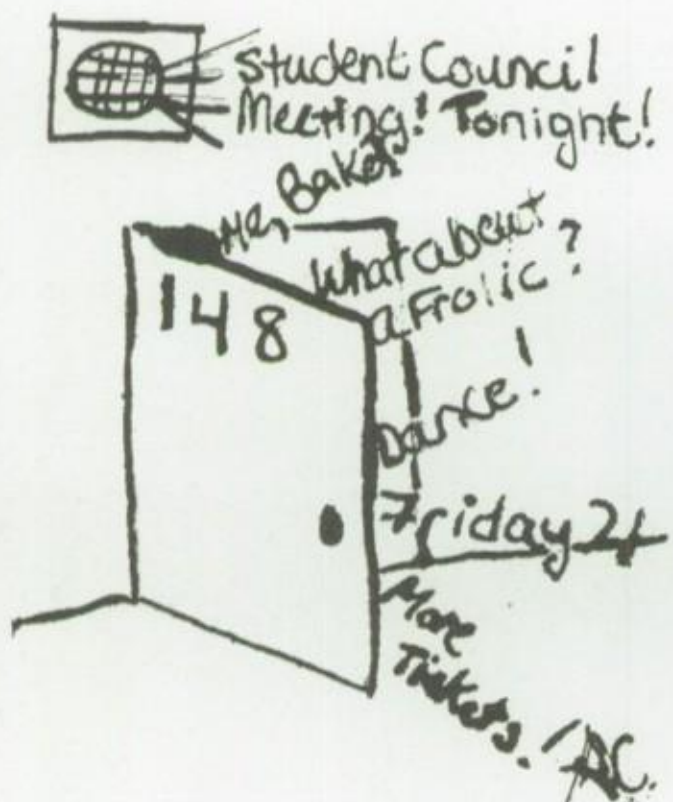 Student Council
Meeting! Tonight!
Mr. Baker
148
What about
a Frolic?
Dance!
Friday 24
More
Tickets!